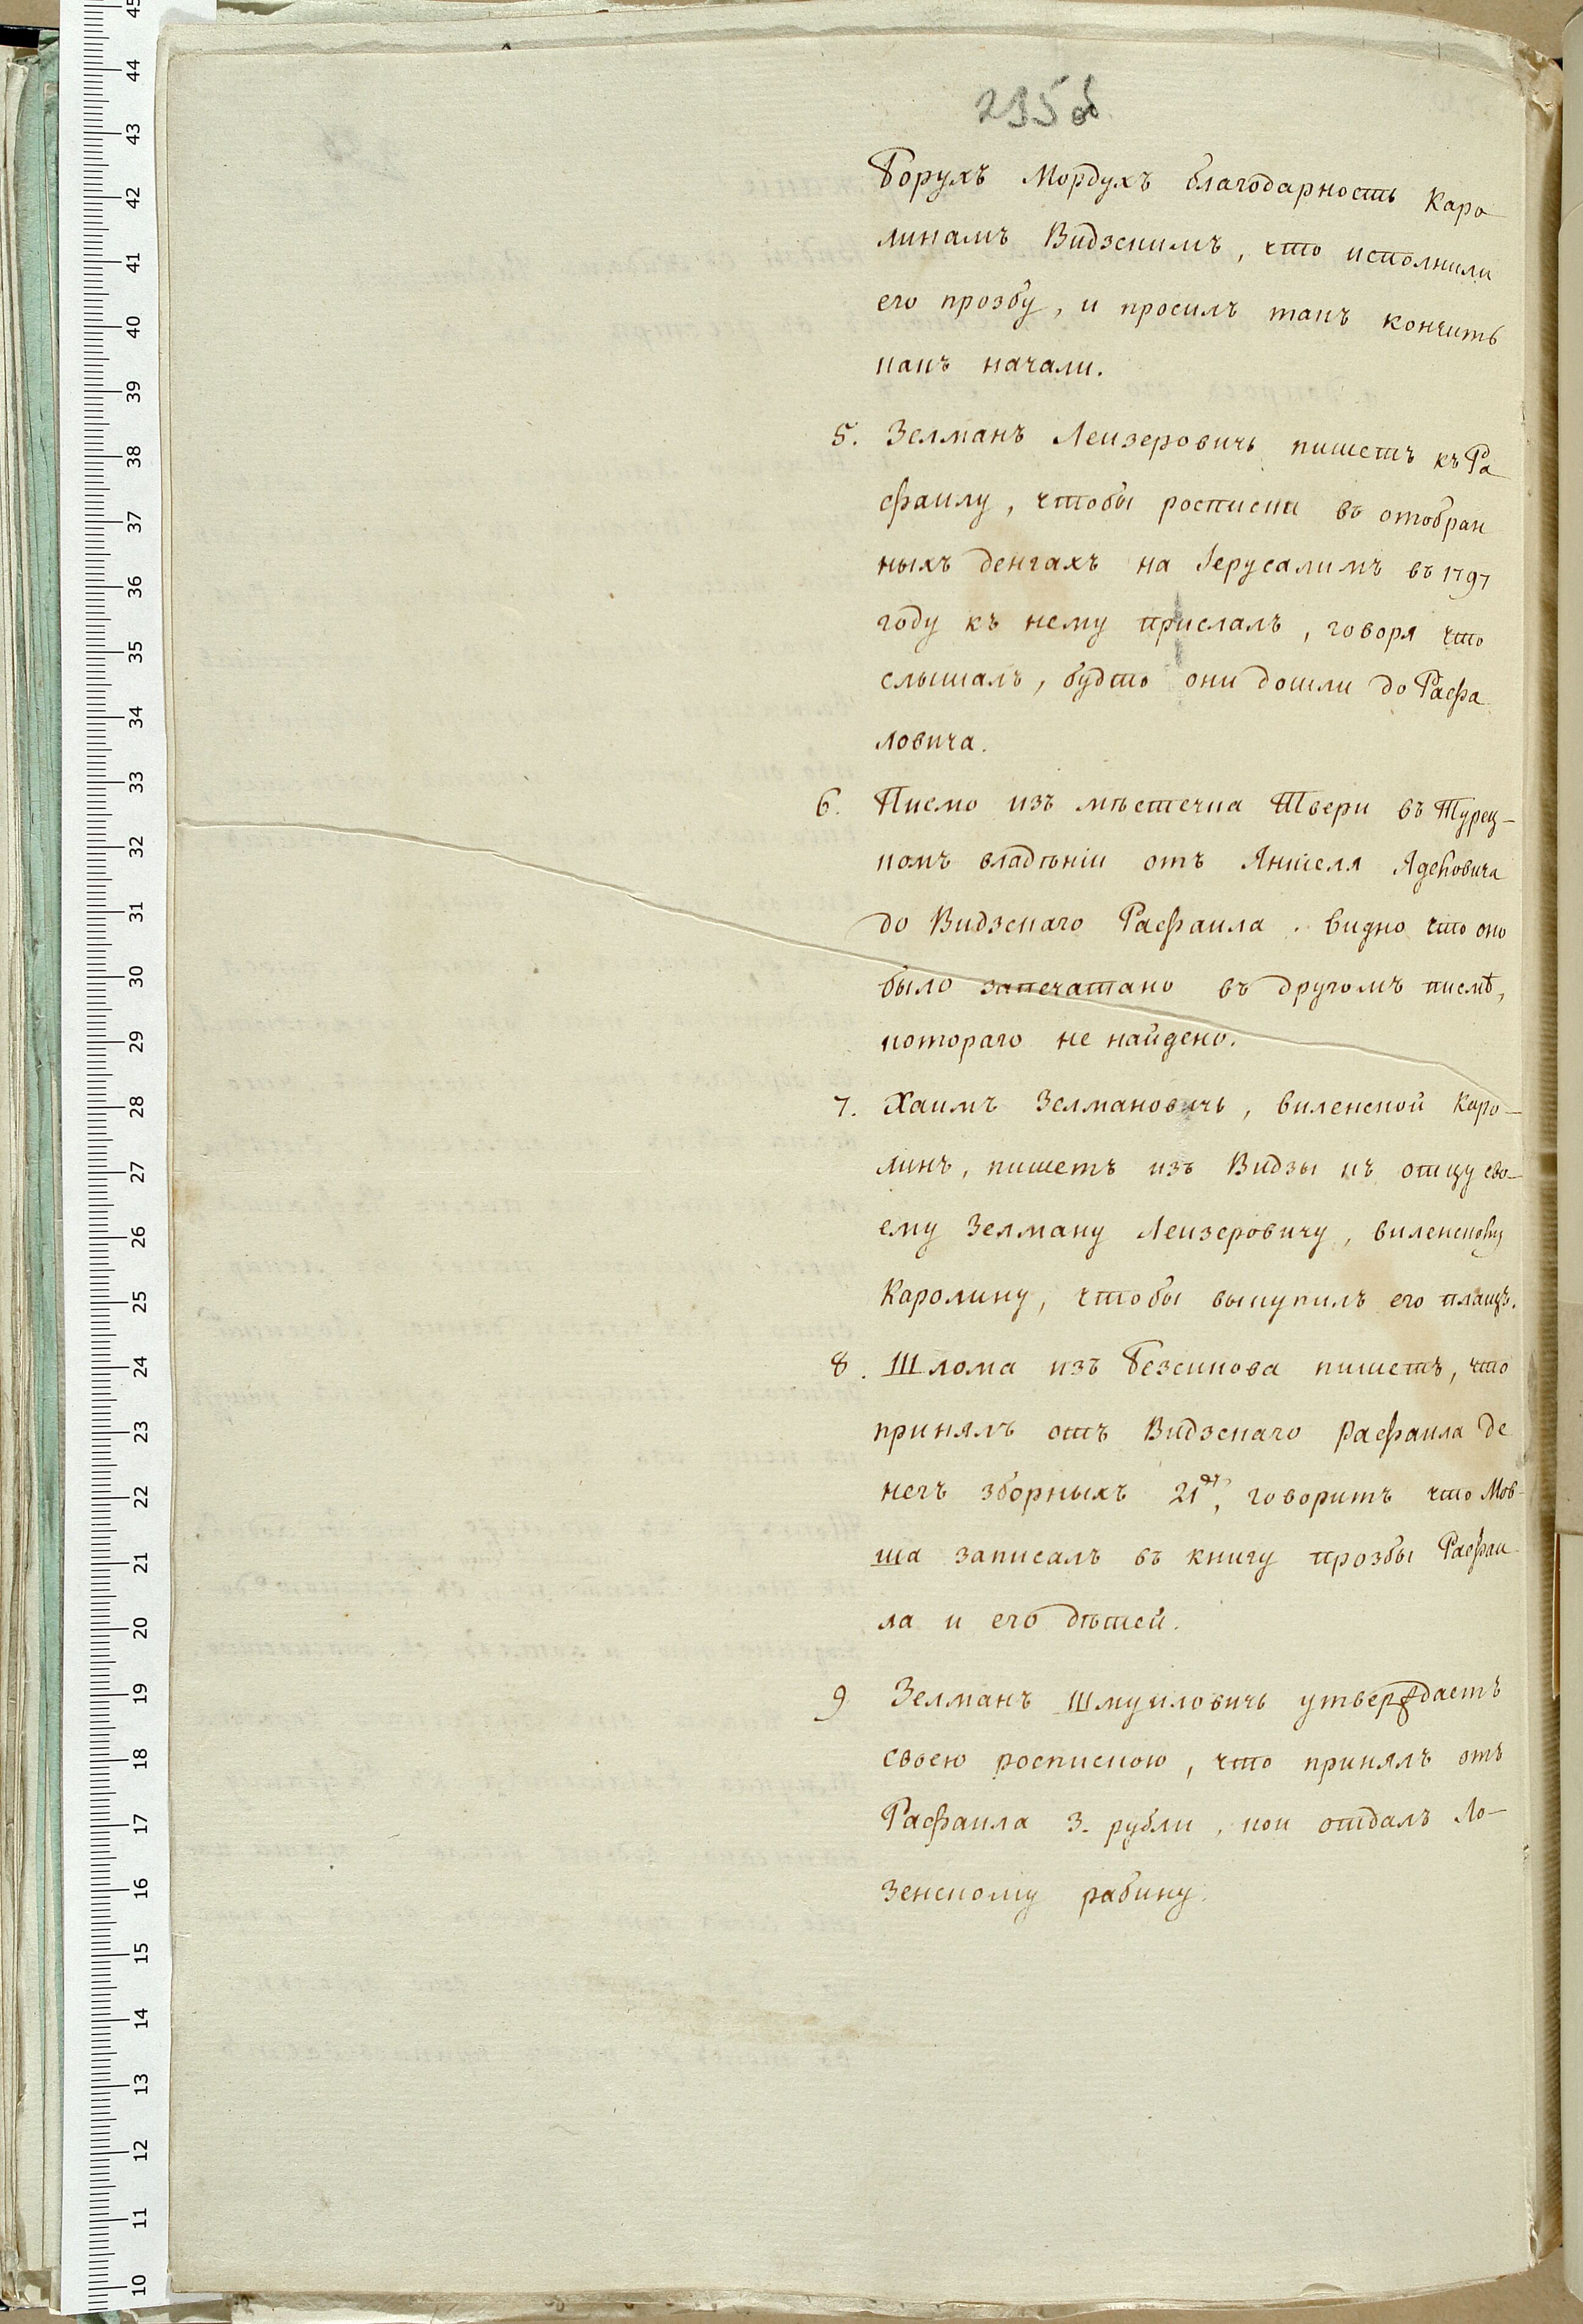 295 об
Борухъ Мордухъ благодарность Каро
линамъ Видзскимъ, что исполнили
его прозбу, и просилъ такъ кончить
какъ начали.
5. Зелманъ Леизеровичь пишетъ къ Ра
фаилу, чтобы росписки въ отобран
ныхъ денгахъ на Іерусалимъ въ 1797
году къ нему прислалъ, говоря что
слышалъ, будто они дошли до Рафа
ловича.
6. Писмо изъ мѣстечка Твери въ Турец-
комъ владѣніи отъ Яншеля
до Видзскаго Рафаила. видно что оно
было запечатано въ другомъ писмѣ,
котораго не найдено.
7. Хаимъ Зелмановичь, виленской Каро-
линъ, пишетъ изъ Видзы къ отцу сво-
ему Зелману Леизеровичу, виленскому
Каролину, чтобы выкупилъ его плащъ.
8. Шлома изъ Безсинова пишетъ, что
принялъ отъ Видзскаго Рафаила де
негъ зборныхъ 21, говоритъ что Мов-
ша записалъ въ книгу прозбы Рафаи
ла и его дѣтей.
9 Зелманъ Шмуиловичь утверждаетъ
своею роспискою, что принялъ отъ
Рафаила 3. рубли, кои отдалъ Ло-
зенскому рабину.
45
44
43
42
41
40
39
38
37
36
35
34
33
32
31
30
29
28
27
26
25
24
23
22
21
20
19
18
17
16
15
14
13
12
11
10